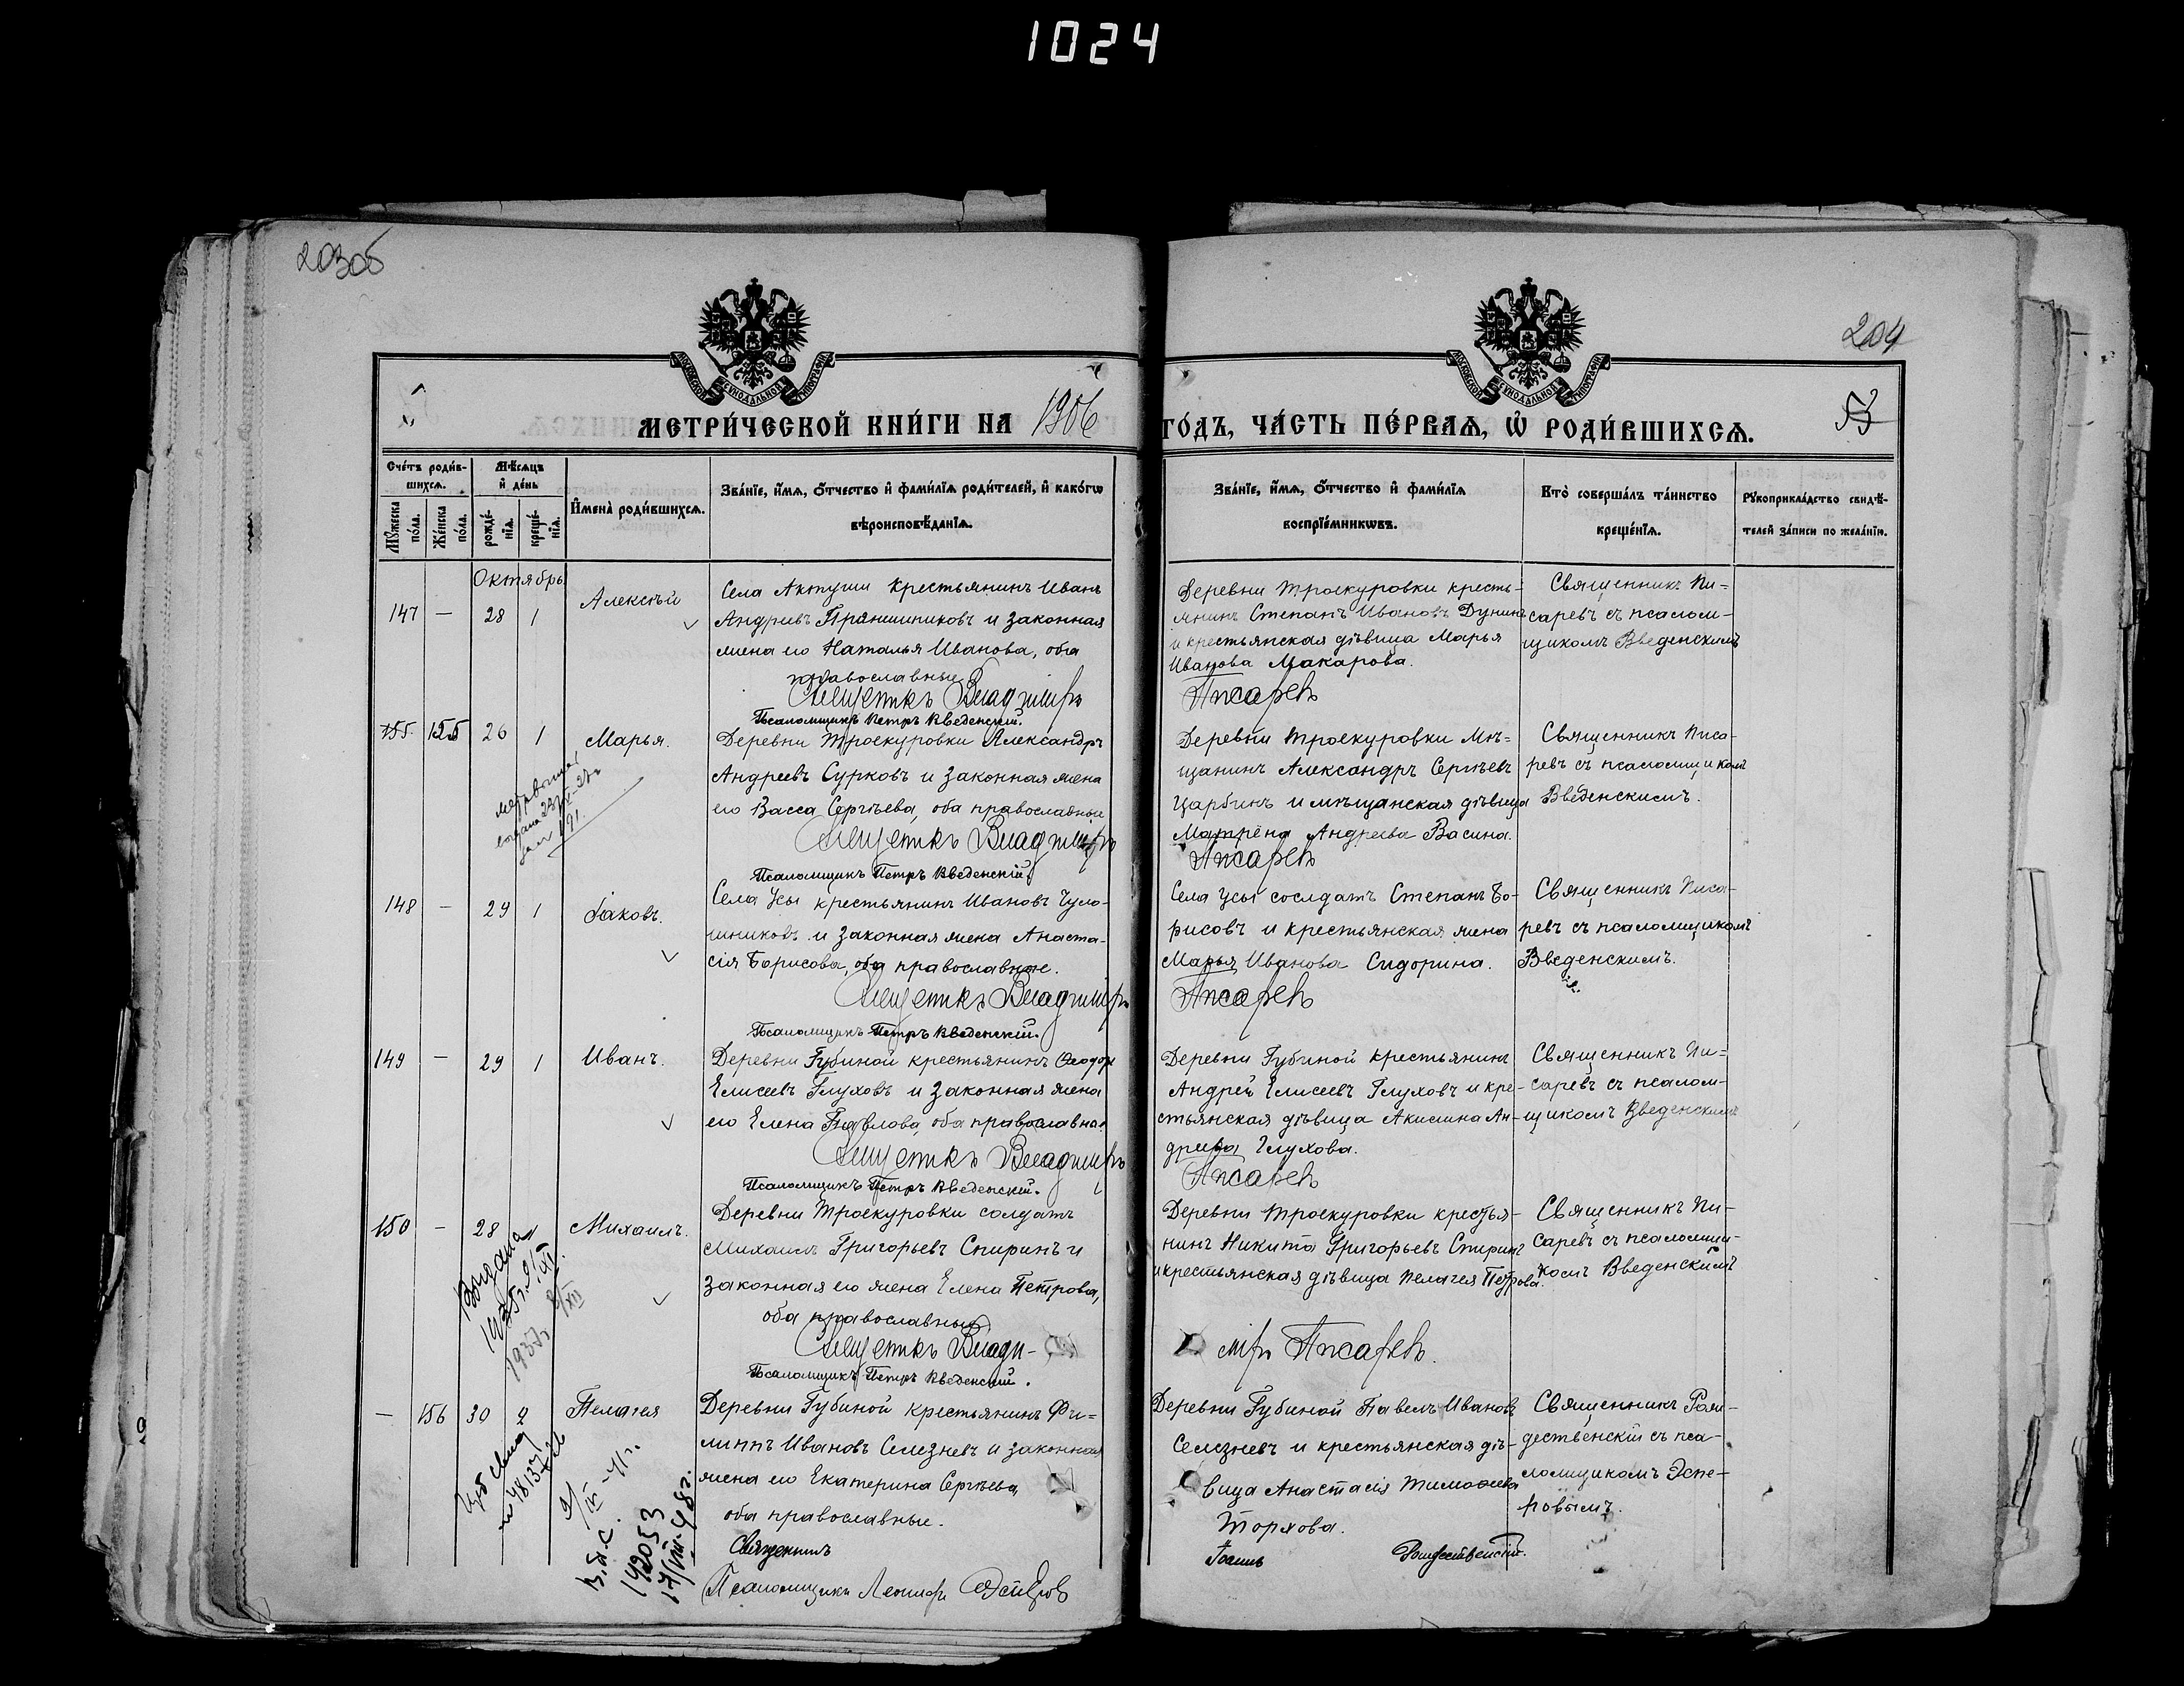 1024
203об
204
53
МОСКОВСКОЙ СѴНОДАЛЬНОЙ ТИПОГРАФІИ
МОСКОВСКОЙ СѴНОДАЛЬНОЙ ТИПОГРАФІИ
МЕТРИ́ЧЕСКОЙ КНИ́ГИ НА 1906 ГО́ДЪ, ЧА́СТЬ ПЕ́РВАѦ, Ѡ҆ РОДИ́ВШИХСѦ.
Сче́тъ роди́в-
шихсѧ.
Мꙋ́жеска по́ла.
Же́нска по́ла.
Мѣ́сѧцъ и҆ де́нь
рожде́-
нїѧ.
креще́-
нїѧ.
И҆мена̀ роди́вшихсѧ.
Зва́нїе, и҆́мѧ, ѻ҆́тчество и҆ фами́лїѧ роди́телей, и҆ како́гѡ
вѣроисповѣ́данїѧ.
Зва́нїе, и҆́мѧ, ѻ҆́тчество и҆ фами́лїѧ
воспрїе́мникѡвъ.
Кто̀ соверша́лъ та́инство
креще́нїѧ.
Рꙋкоприкла́дство свидѣ́-
телей за́писи по жела́нїю.
Октябрь
147 — 28 1 Алексѣй
Села Актуши крестьянинъ Иванъ
Андреевъ Прянишниковъ и законная
жена его Наталья Иванова, оба
православные
Владимiръ
Псаломщикъ Петръ Введенскій.
Деревни Троекуровки кресть-
янинъ Степанъ Ивановъ Дунинъ
и крестьянская дѣвица Марья
Иванова Макарова.
Писаревъ
Священникъ Пи-
саревъ съ псалом-
щикомъ Введенскимъ
155. 155 26 1 Марья.
Деревни Троекуровки Александръ
Андреевъ Сурковъ и законная жена
его Васса Сергѣева, оба православные
Владимiръ
Псаломщикъ Петръ Введенскій.
Деревни Троекуровки Мѣ-
щанинъ Александръ Сергѣевъ
Царбинъ и мѣщанская дѣвица
Матрена Андреева Васина.
Писаревъ
Священникъ Писа-
ревъ съ псаломщикомъ
Введенскимъ.
148 — 29 1 Іаковъ.
Села Усы крестьянинъ Ивановъ Чуло-
шниковъ и законная жена Анаста-
сія Борисова, оба православные.
Владимiръ
Псаломщикъ Петръ Введенскій.
Села Усы солдатъ Степанъ Бо-
рисовъ и крестьянская жена
Марья Иванова Сидорина.
Писаревъ
Священникъ Писа-
ревъ съ псаломщикомъ
Введенскимъ.
149 — 29 1 Иванъ.
Деревни Губиной крестьянинъ Ѳеодоръ
Елисеевъ Глуховъ и законная жена
его Елена Павлова, оба православные
Владимiръ
Псаломщикъ Петръ Введенскій.
Деревни Губиной крестьянинъ
Андрей Елисеевъ Глуховъ и кре-
стьянская дѣвица Акилина Ан-
дреева Глухова.
Писаревъ
Священникъ Пи-
саревъ съ псалом-
щикомъ Введенскимъ
150 — 28 Михаилъ.
Деревни Троекуровки солдатъ
Михаилъ Григорьевъ Спиринъ и
законная его жена Елена Петрова,
оба православные
Влади-
Псаломщикъ Петръ Введенскій.
Деревни Троекуровки крестья-
нинъ Никита Григорьевъ Спиринъ
и крестьянская дѣвица Пелагея Петрова.
міръ Писаревъ.
Священникъ Пи-
саревъ съ псаломщи-
комъ Введенскимъ
Выдана
— 156 30 2 Пелагея
Деревни Губиной крестьянинъ Фи-
липпъ Ивановъ Селезневъ и законная
жена его Екатерина Сергѣева,
оба православные.
Священникъ
Псаломщикъ Леонидъ Эсперовъ
Деревни Губиной Павелъ Ивановъ
Селезневъ и крестьянская дѣ-
вица Анастасія Тимоѳеева
Торхова.
Іоаннъ Рождественскій.
Священникъ Рож-
дественскій съ пса-
ломщикомъ Эспе-
ровымъ.
142053
17/VIII-48г.